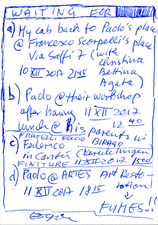 WAITING FOR
a) My cab back to Paolo's place
@ Francesco Scarpelli's place
Via Saffi 7 (with Christina
10 XII 2017 2145 Bettina
Agata
b) Paolo @ their workshop
after having 11 XII 2017
lunch @ his parents in 40
FRATELLI BIRAGO
c) Federico
in Cantù
FINITURE 11 XII 2017 1500
d) Paolo @ ARTES Art Resto-
11 XII 2017 1815 ration
FUMES!!